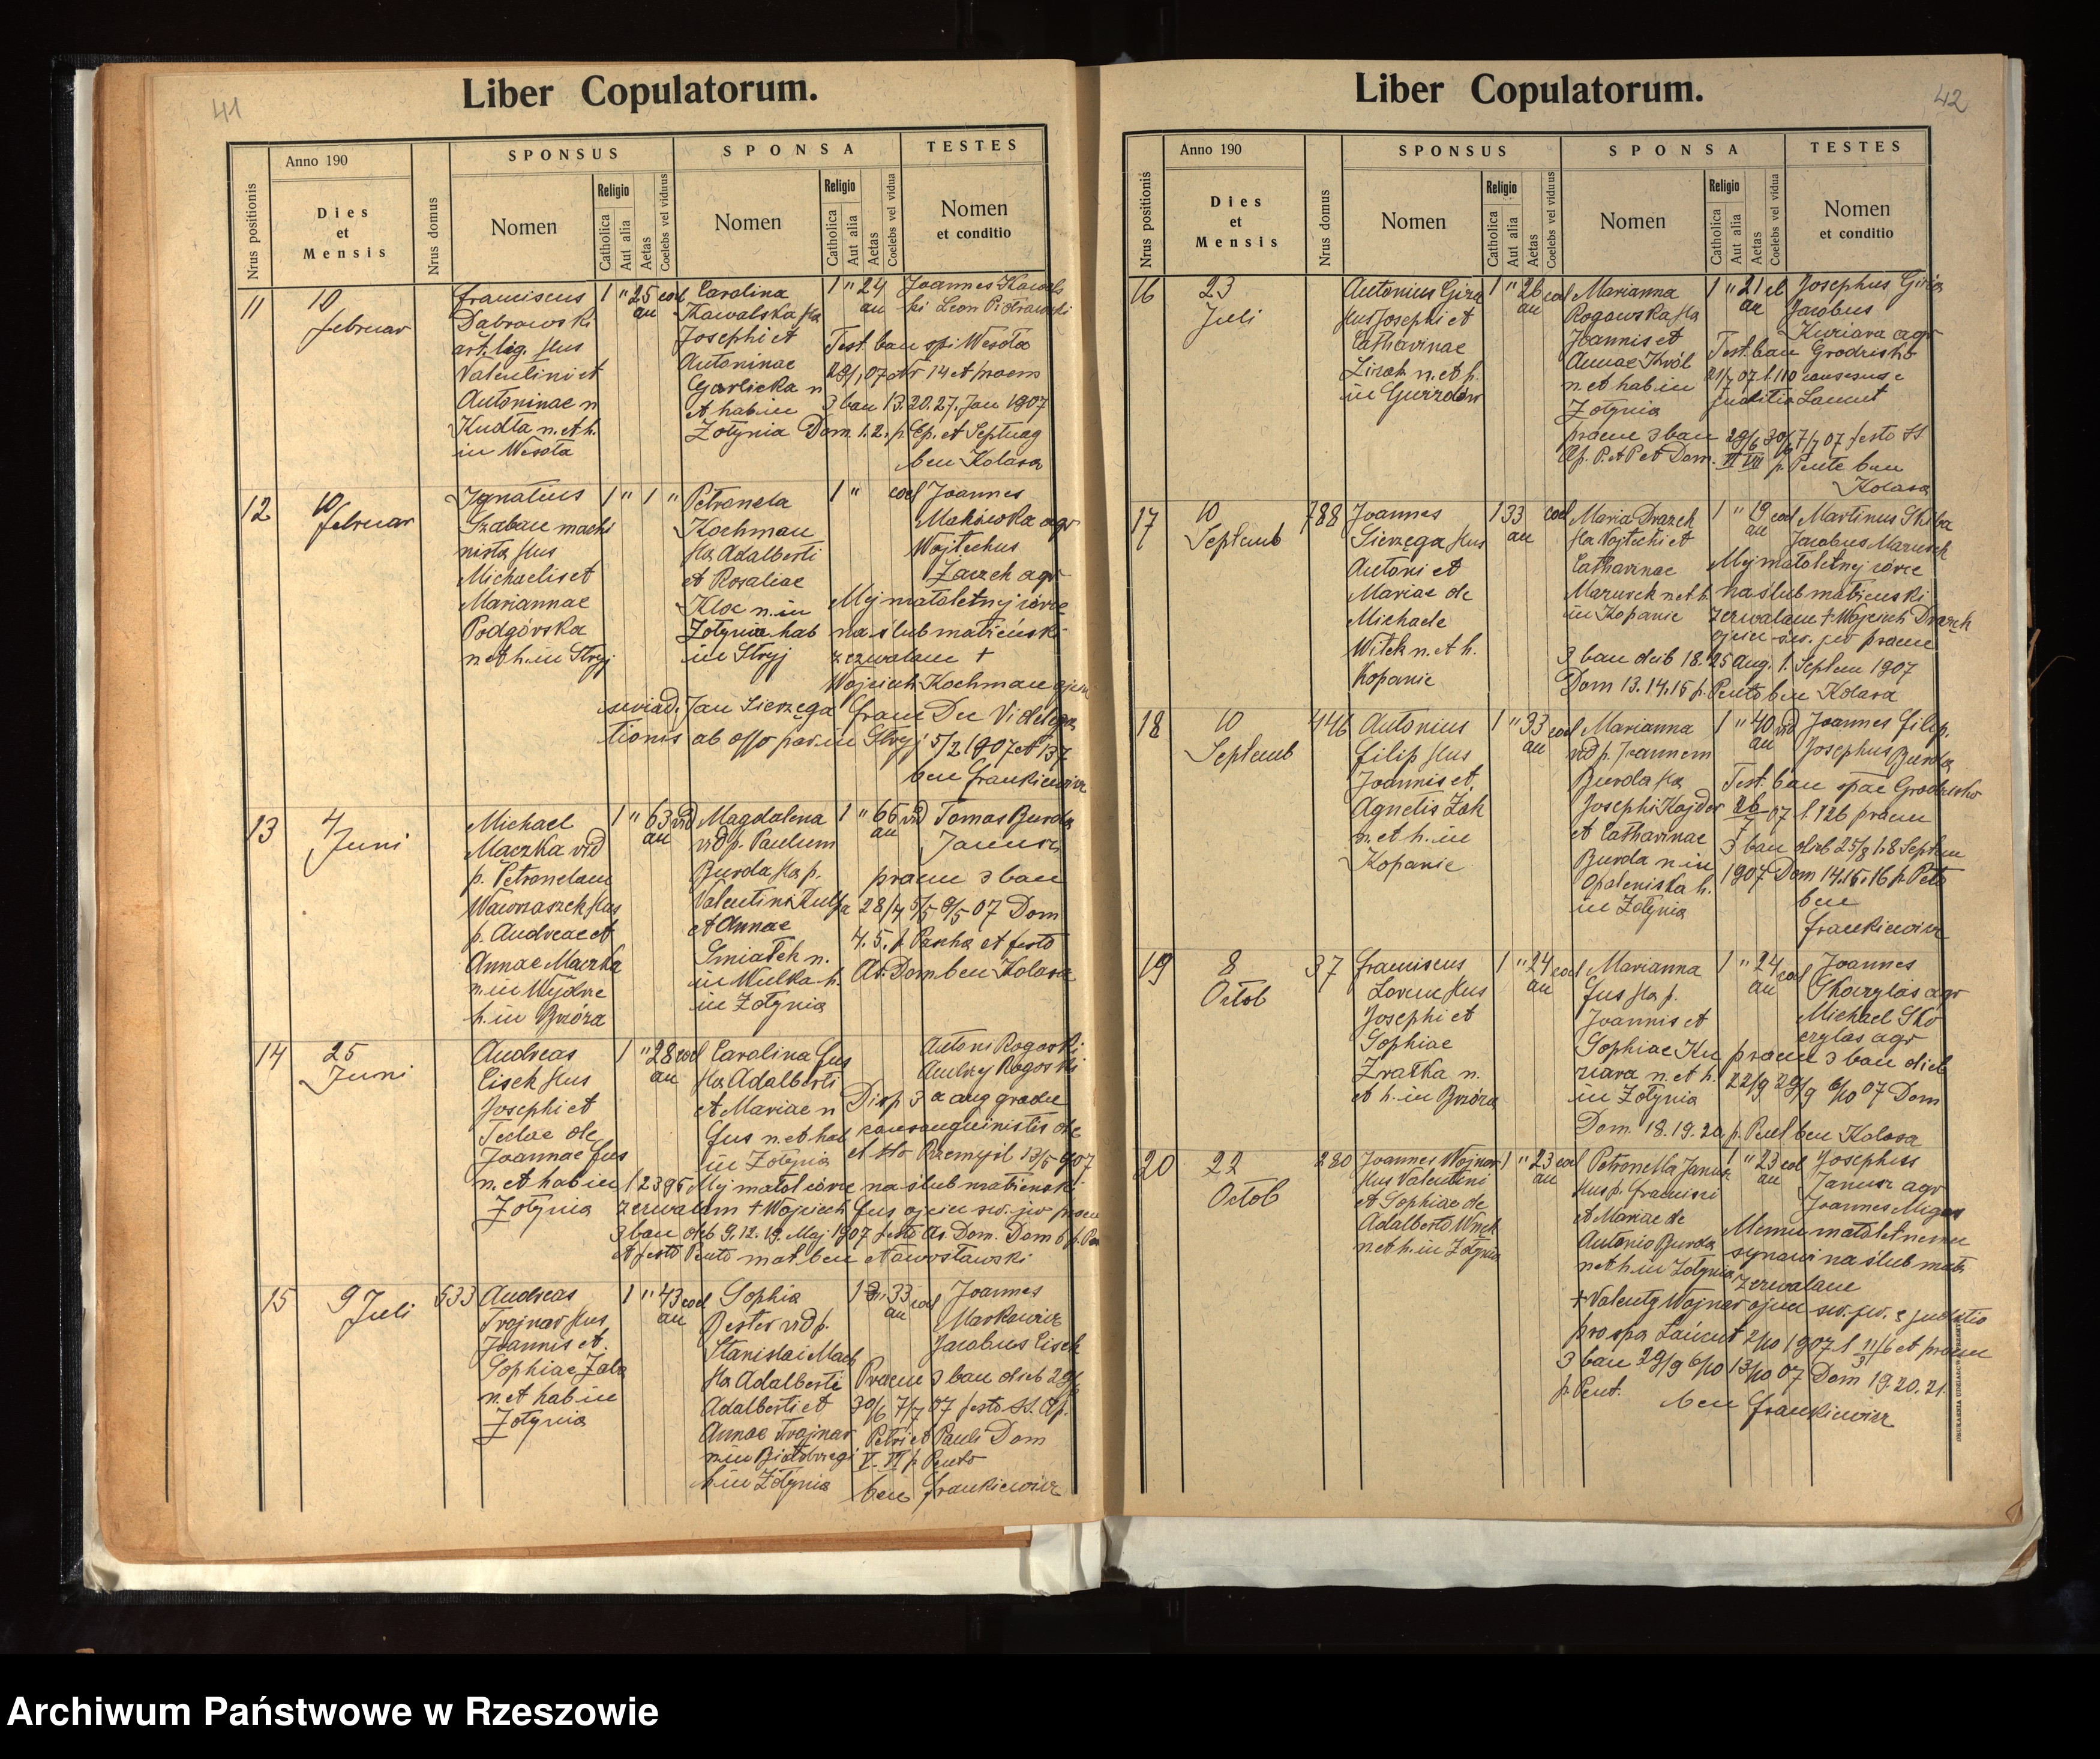 41
Liber Copulatorum.
Nrus positionis
Anno 190
Dies
et
Mensis
Nrus domus
SPONSUS
Nomen
Religio
Catholica
Aut alia
Aetas
Coelebs vel viduus
SPONSA
Nomen
Religio
Catholica
Aut alia
Aetas
Coelebs vel vidua
TESTES
Nomen
et conditio
11
10
Februar
Franciscus
Dabrowski
art. lig. flus
Valentini et
Antoninae n
Kudła n. et h.
in Wesoła
1 " 25 coel
an
Carolina
Kowalska fla
Josephi et
Antoninae
Garlicka n
et hab in
Żołynia
1 " 24
an
Joannes Kowals
ki Leon Piotrowski
Test. ban spi Wesoła
29/1 07 et praem
3 ban 13. 20. 27. Jan 1907
Dom 1. 2. p. Ep. et Septuag
ben Kolasa
12
10
Februar
Ignatius
Szaban machi
nista flus
Michaelis et
Mariannae
Podgórska
n et h. in Stryj
1 " 1 "
Petronela
Kochman
fla Adalberti
et Rosaliae
Kloc n. in
Żołynia hab
in Stryj
1 " coel
Joannes
Makówka agr
Wojtechus
Zaczek agr
Mej małoletnej córce
na ślub małżeński
zezwalam +
Wojciech Kochman ojciec
świad. Jan Sierzęga
ab offo par. in Stryj 5/2 1907
ben Frankiewicz
13
4
Juni
Michael
Maczka vid
p. Petronelam
Wawrzaszek flus
p. Andreae et
Annae Maczka
n. in Wydrze
h. in Brzóza
1 " 63 vid
an
Magdalena
vid p. Paulum
Burda fla p.
Valentini Kulpa
et Annae
Smiałek n.
in Wulka h.
in Żołynia
1 " 66 vid
an
Tomas Burda
Janusz
praem 3 ban
28/4 5/5 9/5 07 Dom
4. 5. p. Pascha et festo
As. Dom ben Kolasa
14
25
Juni
Andreas
Cisek flus
Josephi et
Teclae de
Joannae Fus
n. et hab in
Żołynia
1 " 28 coel
an
Carolina Fus
fla Adalberti
et Mariae n
Fus n. et hab
in Żołynia
Antoni Rogoski
Andrzy Rogoski
Disp 3 a aeq gradu
consanguinistis de
Przemyśl 13/5 907
l 2395 Mej małol córce na ślub małżenski
zezwalam + Wojciech Fus ojciec św. jw praem
3 ban dieb 9. 12. 19. Maj 1907 festo As. Dom. Dom 6 p. Pa
et festo Pento mat ben Nawosławski
15
9 Juli
533
Andreas
Trojnar flus
Joannis et
Sophiae Zala
n. et hab in
Żołynia
1 " 43 coel
an
Sophia
Bester vid p.
Stanislai Mach
fla Adalberti
Adalberti et
Annae Trojnar
n in Białobrzegi
h. in Żołynia
33
an
coel
Joannes
Markowicz
Jacobus Cisek
Praem 3 ban dieb 29/6
30/6 7/7 07 festo SS. Ap.
Petri et Pauli Dom
V. VI p. Pento
ben Frankiewicz
42
Liber Copulatorum.
Nrus positionis
Anno 190
Dies
et
Mensis
Nrus domus
SPONSUS
Nomen
Religio
Catholica
Aut alia
Aetas
Coelebs vel viduus
SPONSA
Nomen
Religio
Catholica
Aut alia
Aetas
Coelebs vel vidua
TESTES
Nomen
et conditio
16
23
Juli
Antonius Giża
flus Josephi et
Catharinae
n. et h.
in Gwizdów
1 " 26 coel
an
Marianna
Rogowska fla
Joannis et
Annae Król
n. et hab in
Żołynia
1 " 21 cl
an
Josephus Giża
Jacobus
Kuziara agr
Test. ban Grodzisko
21/7 07 l. 110 consensus e
juditio Łancut
praem 3 ban 29/6 30/6 7/7 07 festo SS
Ap. P. et P et Dom. VI VII p. Pente ben
Kolasa
17
10
Septemb
788
Joannes
Sierzęga flus
Antoni et
Mariae de
Michaele
Witek n. et h.
Kopanie
1 33 coel
an
Maria Drazek
fla Wojtechi et
Catharinae
Mazurek n et h
in Kopanie
1 " 19 coel
an
Martinus Skiba
Jacobus Mazurek
Mej małoletnej córce
na ślub małżenski
zezwalam + Wojciech Drazek
ojciec św. jw praem
3 ban dieb 18. 25 Aug. 1. Septem 1907
Dom 13. 14. 15 p. Pento ben Kolasa
18
10
Septemb
446
Antonius
Filip flus
Joannis et
Agnetis Żak
n. et h. in
Kopanie
1 " 33 coel
an
Marianna
vid p. Joannem
Burda fla
Josephi Kojder
et Catharinae
Burda n. in
Opaleniska h.
in Żołynia
1 " 40 vid
an
Joannes Filip.
Josephus Burda
Test. ban spae Grodzisko
l. 126 praem
3 ban dieb 25/8 1. 8 Septem
1907 Dom 14. 15. 16 p. Pento
ben
Frankiewicz
19
8
Octob
37
Franciscus
Lorenc flus
Josephi et
Sophiae
Zrałka n.
et h. in Brzóza
1 " 24 coel
an
Marianna
Fus fla p.
Joannis et
Sophiae Ku
ziara n. et h.
in Żołynia
1 " 24 coel
an
Joannes
Skoczylas agr
Michael Sko
czylas agr
praem 3 ban dieb
22/9 29/9 6/10 07 Dom
Dom. 18. 19. 20 p. Pent ben Kolasa
20
22
Octob
280
Joannes Wojnar
flus Valentini
et Sophiae de
Adalberto Wnęk
n et h. in Żołynia
1 " 23 coel
an
Petronella Janusz
flus p. Francisci
et Mariae de
Antonio Burda
n et h. in Żołynia
1 " 23 coel
an
Josephus
Janusz agr
Joannes Migas
Memu małoletnemu
synowi na ślub małż
zezwalam
+ Valenty Wojnar ojciec św. jw. e juditio
pro spa Łańcut 2/10 1907 l et praem
3 ban 29/9 6/10 13/10 07 Dom 19. 20. 21.
p. Pent.
ben Frankiewicz
Archiwum Państwowe w Rzeszowie